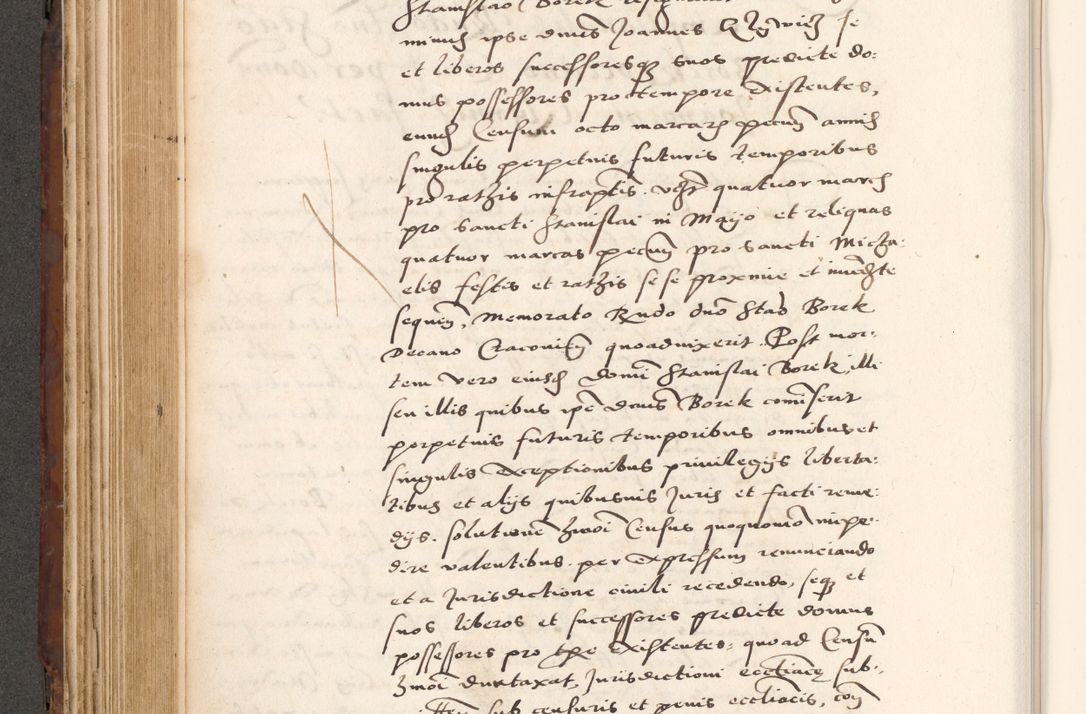 Stanislao Borek
minus ipse dnus Joannes se
et liberos successoresqz suos predicte do:
mus possessores pro tempore existentes,
eundem Censum octo marcarum pecun annis
singulis perpetuis futuris temporibus
pro rathis infraptis. vzt quatuor march
pro Sancti Stanislai in Mayo et reliquas
quatuor marcas pecun pro Sancti Micha:
elis festis et rathis se se proxime et immediate
sequen, Memorato Rndo dno Stao Borek
Decano Cracovien quoad vixerit. Post mor:
tem vero eiusd domi Stanislai Borek, illi
seu illis quibus ipe dnus Borek comiserit
perpetuis futuris temporibus omnibus et
singulis exceptionibus privilegijs liberta:
tibus et alijs quibusuis Juris et facti reme:
dijs. solutionem hmoi Census quoquomo impe:
dire valentibus. per expressum renunciando
et a Jurisdictione civili recedendo, seqz et
suos liberos et successores predicte domus
possessores pro tpe existentes: quoad Censum
hmoi duntaxat, Jurisdictioni eccliace sub:
sub censuris et penis eccliacis, con